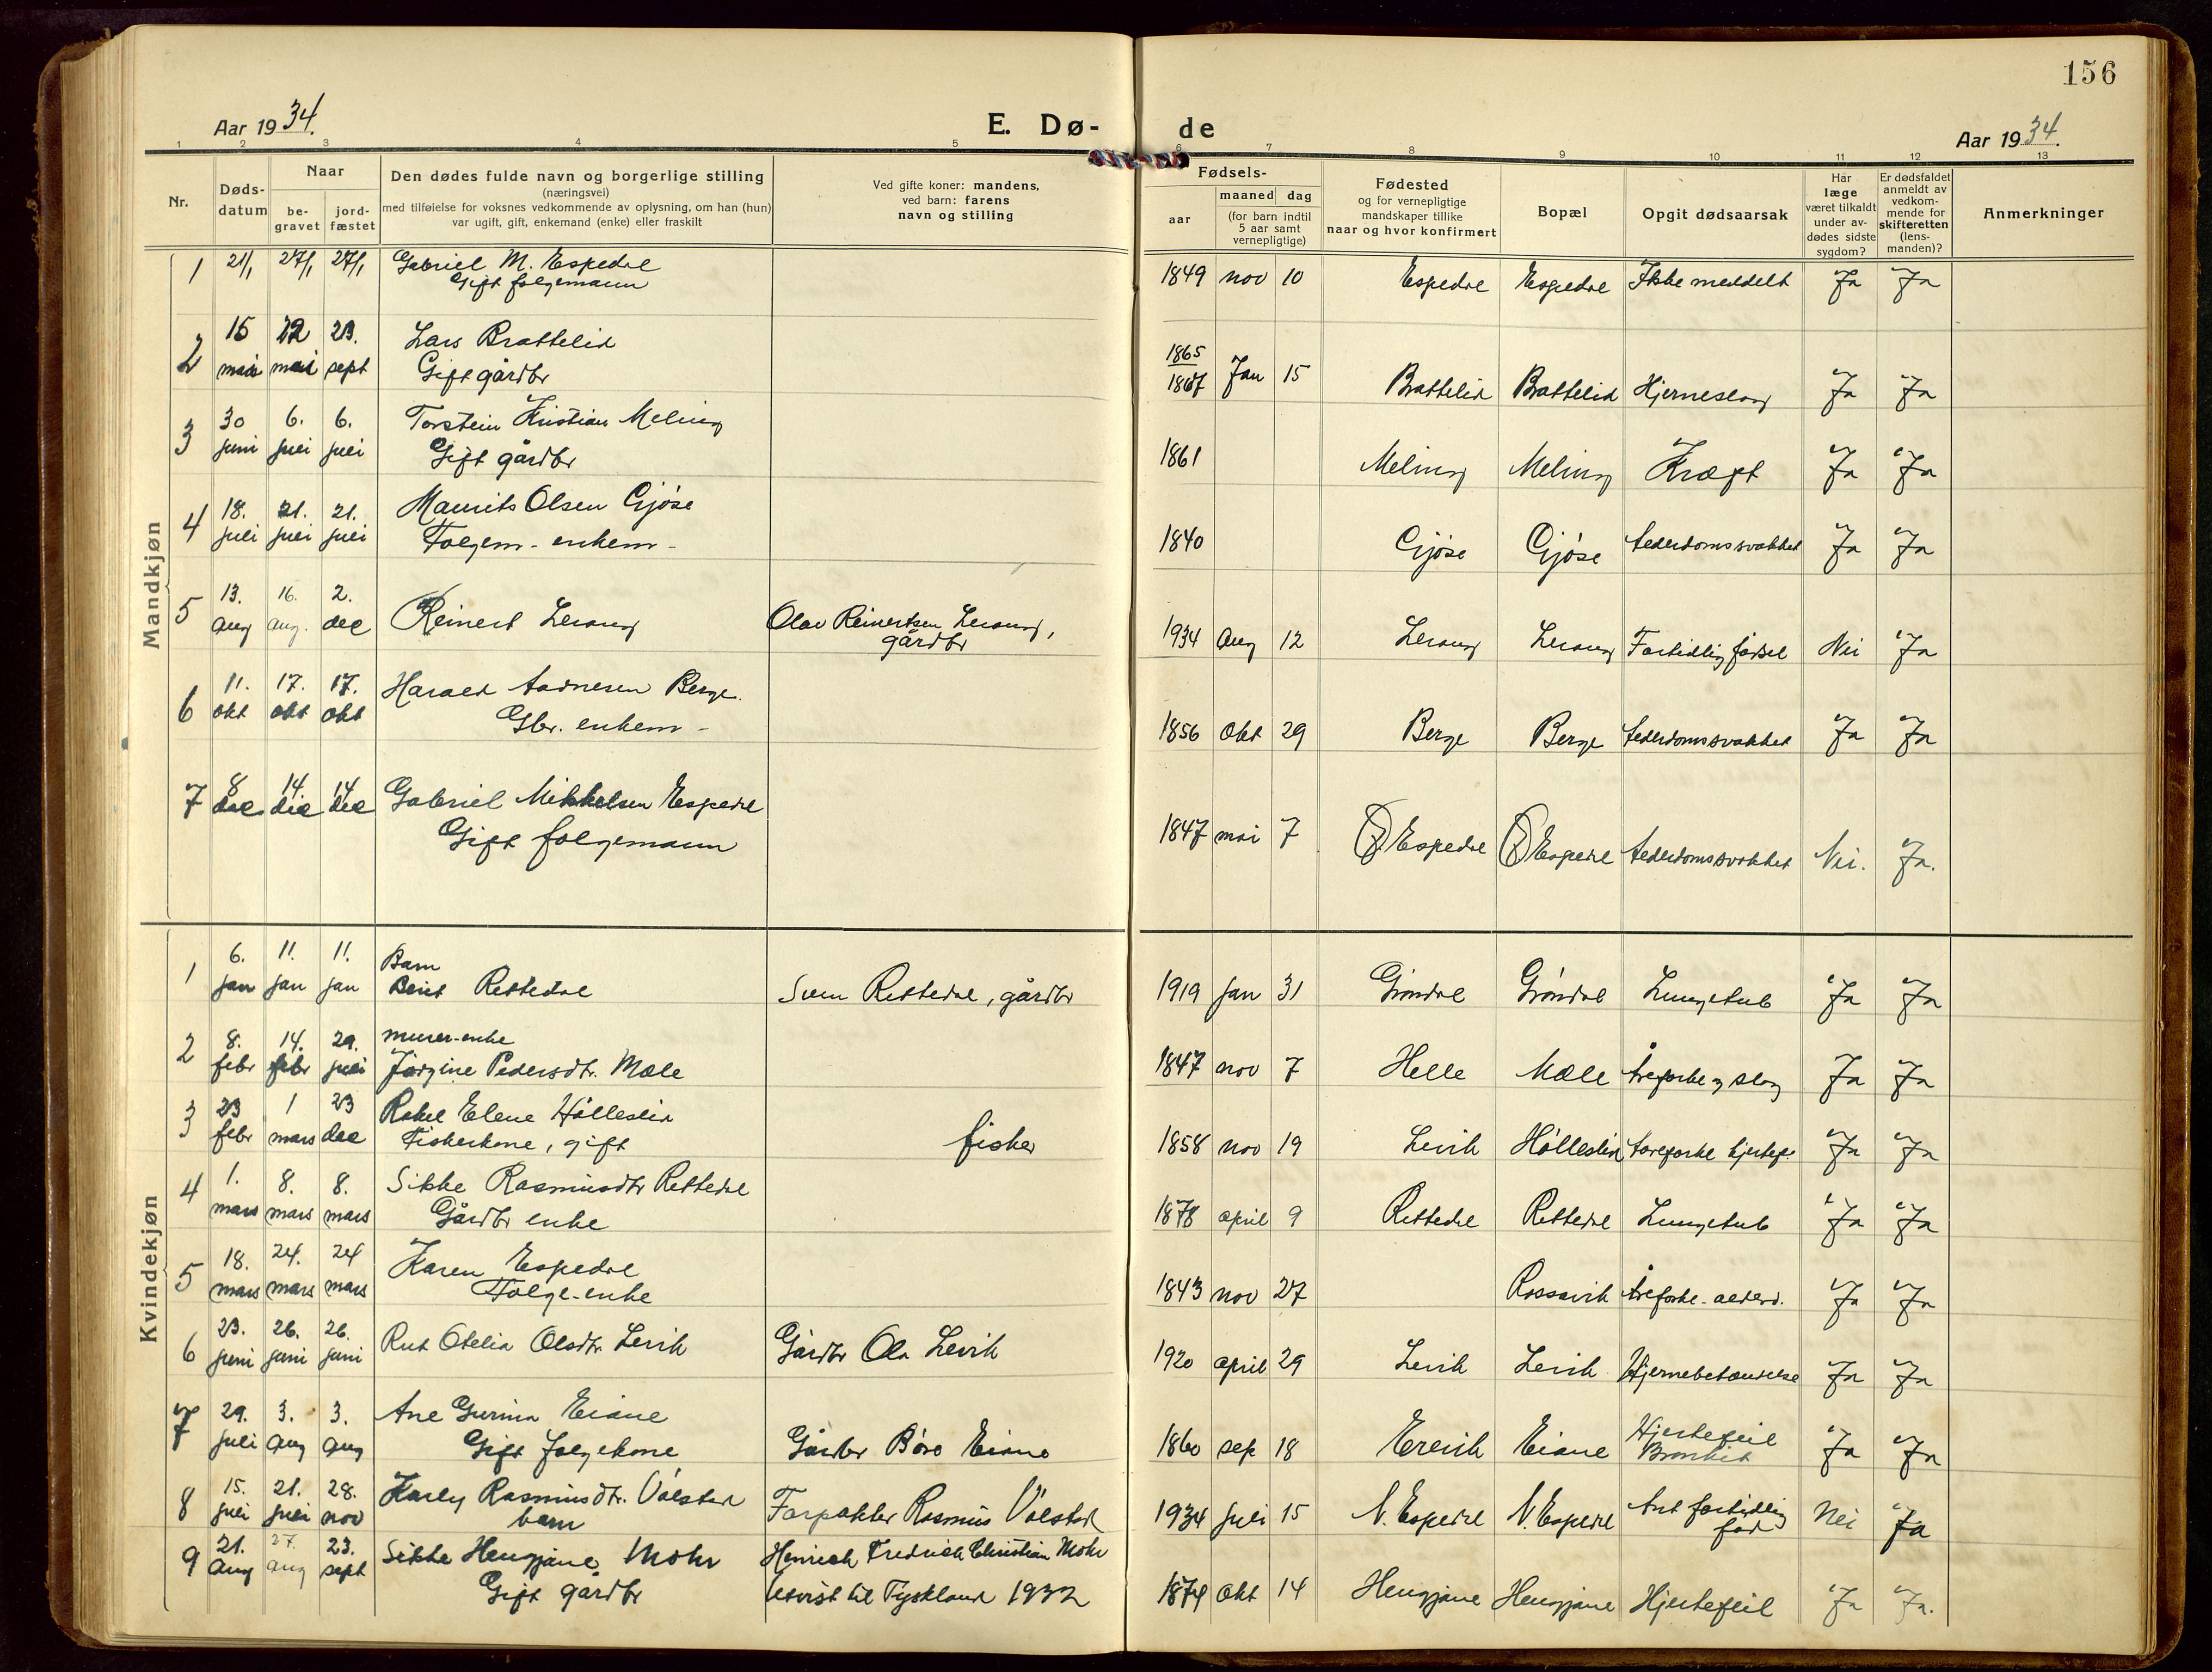 156
Aar 1934.
E. Dø-
de
Aar 1934.
1 2 3 4 5 6 7 8 9 10 11 12 13
Nr.
Døds-
datum
Naar
be-
gravet
jord-
fæstet
Den dødes fulde navn og borgerlige stilling
(næringsvei)
med tilføielse for voksnes vedkommende av oplysning, om han (hun)
var ugift, gift, enkemand (enke) eller fraskilt
Ved gifte koner: mandens,
ved barn: farens
navn og stilling
Fødsels-
aar
maaned dag
(for barn indtil
5 aar samt
vernepligtige)
Fødested
og for vernepligtige
mandskaper tillike
naar og hvor konfirmert
Bopæl
Opgit dødsaarsak
Har
læge
været tilkaldt
under av-
dødes sidste
sygdom?
Er dødsfaldet
anmeldt av
vedkom-
mende for
skifteretten
(lens-
manden)?
Anmerkninger
Mandkjøn
1 21/1 27/1 27/1 Gabriel M. Espedal 1849 nov 10 Espedal Espedal Ikke meddelt Ja Ja
Gift folgemann
2 15 22 23. Lars Brattelid 1865
mai mai sept Gift gårdbr 1867 Jan 15 Brattelid Brattelid Hjerneslag Ja Ja
3 30 6. 6. Torstein Kristian Meling
juni juli juli Gift gårdbr 1861 Meling Meling Kræft Ja Ja
4 18. 21. 21. Maurits Olsen Gjøse
juli juli juli Folgem - enkem - 1840 Gjøse Gjøse Aederdomssvakhet Ja Ja
5 13. 16. 2.
aug aug. dec Reinert Lerang Olav Reinertsen Lerang, 1934 Aug 12 Lerang Lerang Fortidlig fødsel Nei Ja
gårdbr
6 11. 17. 17. Harald Aadnesen Berge.
okt okt okt Gbr. enkem - 1856 Okt 29 Berge Berge Aederdomssvakhet Ja Ja
7 8 14. 14
dec dec dec Gabriel Mikkelsen Espedal
Gift folgemann 1847 mai 7 Espedal Espedal Aederdomssvakhet Nei. Ja.
Kvindekjøn
1 6. 11. 11. Barn
jan jan jan Berit Rettedal Sven Rettedal, gårdbr 1919 jan 31 Grøndal Grøndal Lungetub Ja Ja
2 8. 14. 29. murer-enke
febr febr juli Jørgine Pedersdtr. Mæle 1847 nov 7 Helle Mæle Åreforke og slag Ja Ja
3 23 1 23 Rakel Elene Hølleslid
febr mars dec Fiskerkone, gift fisker 1858 nov 19 Levik Hølleslid Aareforke hjertef. Ja Ja
4 1. 8. 8. Sikke Rasmusdtr Rettedal
mars mars mars Gårdbr enke 1878 april 9 Rettedal Rettedal Lungetub Ja Ja
5 18. 24. 24 Karen Espedal
mars mars mars Folge-enke 1843 nov 27 Rossavik Åreforke - alderd. Ja Ja
6 23. 26. 26.
juni juni juni Rut Otelia Olsdtr. Levik Gårdbr Ola Levik 1920 april 29 Levik Levik Hjernebetændelse Ja Ja
7 29. 3. 3. Ane Gurina Eiane
juli Aug Aug Gift folgekone Gårdbr Båro Eiane 1860 sep 18 Erevik Eiane Hjertefeil Ja Ja
Bronkit
8 15. 21. 28. Karly Rasmusdtr. Vølstad
juli juli nov barn Forpakter Rasmus Vølstad 1934 juli 15 N. Espedal N. Espedal Ant fortidlig Nei Ja
fød
9 21. 27. 23. Sikke Hengjane Mohr Henrich Fredrich Christian Mohr
Aug aug sept Gift gårdbr Utvist til Tyskland 1932 1874 Okt 14 Hengjane Hengjane Hjertefeil Ja Ja.